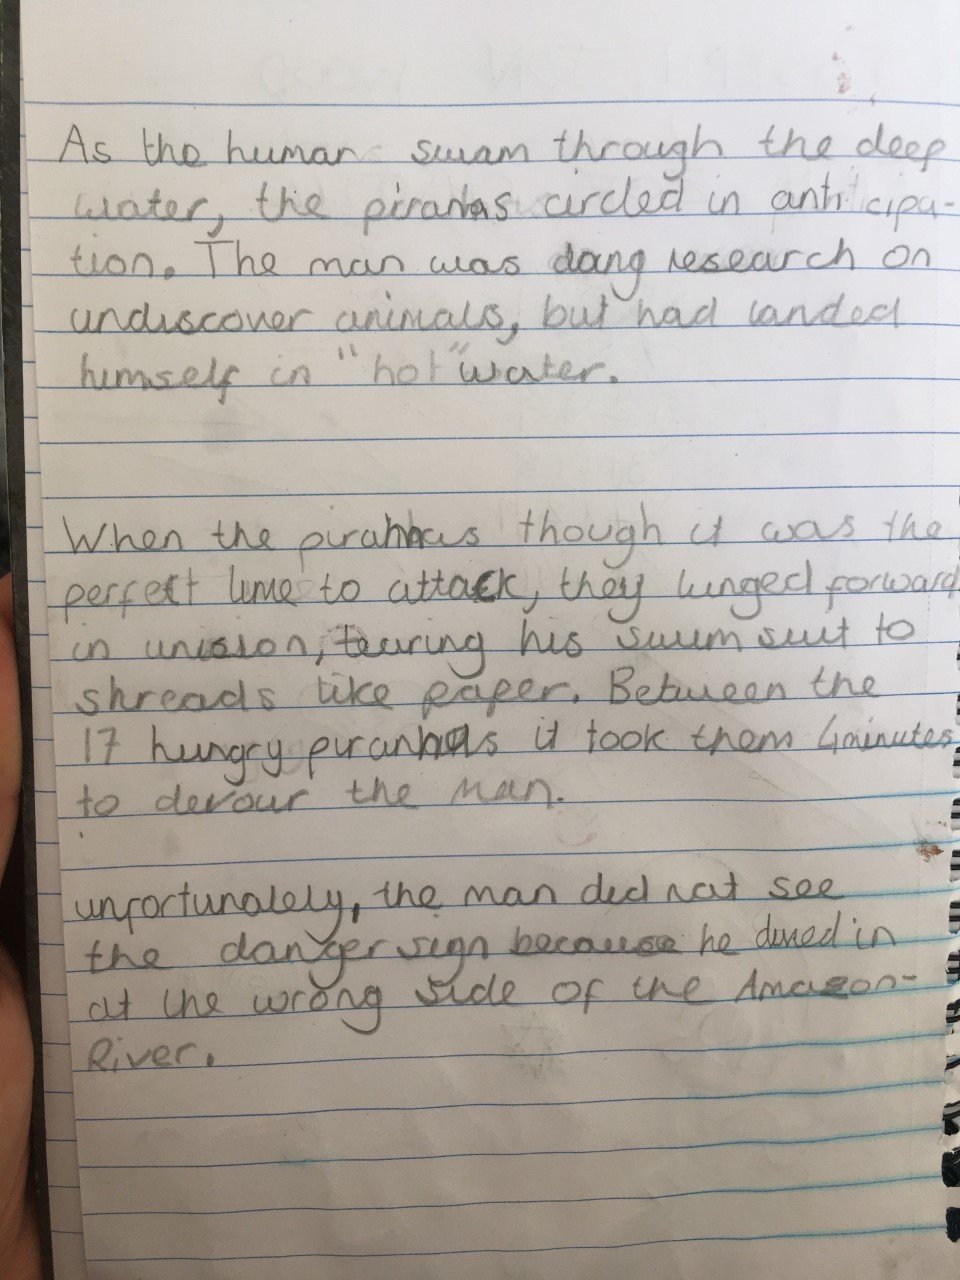 As the human swam through the deep
water, the piranhas circled in anticipa-
tion. The man was doing research on
undiscover animals, but had landed
himself in "hot" water.
When the piranhas though it was the
perfect time to attack, they lunged forward
in unision, tearing his swim suit to
shreads like paper. Between the
17 hungry piranhas it took them 4minutes
to devour the man.
unfortunalely, the man did not see
the danger sign because he dived in
at the wrong side of the Amazon-
River.